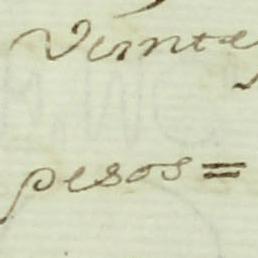 Veinte
pesos=